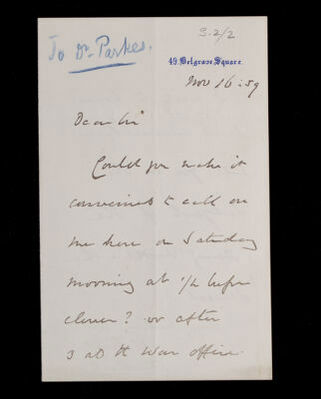 To Dr. Parkes.
3.2/2
49. Belgrave Square.
Nov 16. 59
Dear Sir
Could you make it
convenient to call on
me here on Saturday
morning at 1/2 before
eleven? or after
3 at the War Office